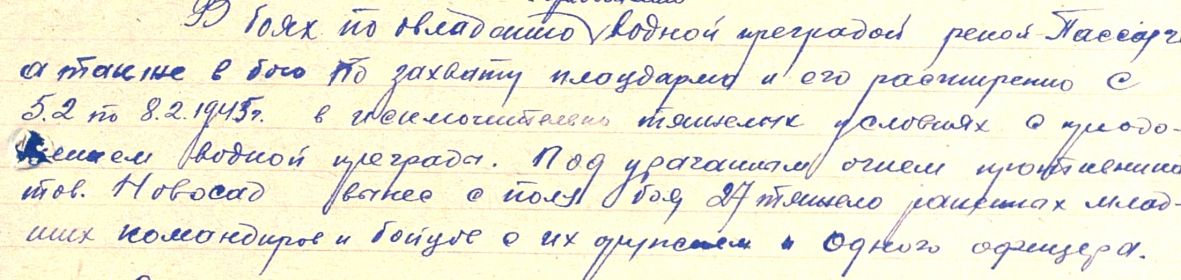 В боях по овладению водной преградой рекой Пассарге
а также в бою по захвату плацдарма и его расширению с
5.2 по 8.2.1945г. в исключительно тяжелых условиях с преодо-
лением водной преграды. Под ураганным огнем противника
тов. Новосад вынес с поля боя 27 тяжело раненых млад-
ших командиров и бойцов с их оружием и одного офицера.